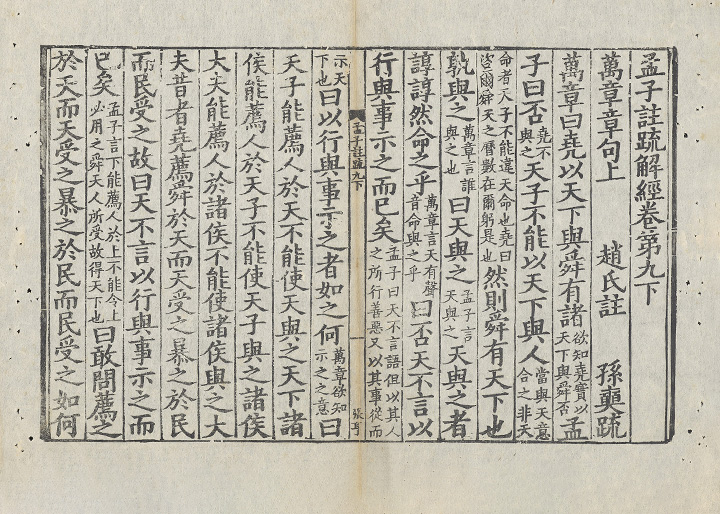 孟子註疏解經卷第九下
萬章章句上 趙氏註 孫奭疏
萬章曰堯以天下與舜有諸欲知堯實以天下與舜否孟
子曰否堯不與之天子不能以天下與人當與天意合之非天
命者天子不能違天命也堯曰咨爾舜天之曆數在爾躬是也然則舜有天下也
孰與之萬章言誰與之也曰天與之孟子言天與之天與之者
諄諄然命之乎萬章言天有聲音命與之乎曰否天不言以
行與事示之而已矣孟子曰天不言語但以其人之所行善惡又以其事從而
孟子註疏九下
一
張亨
示天下也曰以行與事示之者如之何萬章欲知示之之意曰
天子能薦人於天不能使天與之天下諸
侯能薦人於天子不能使天子與之諸侯
大夫能薦人於諸侯不能使諸侯與之大
夫昔者堯薦舜於天而天受之暴之於民
而民受之故曰天不言以行與事示之而
已矣孟子言下能薦人於上不能令上必用之舜天人所受故得天下也曰敢問薦之
於天而天受之暴之於民而民受之如何